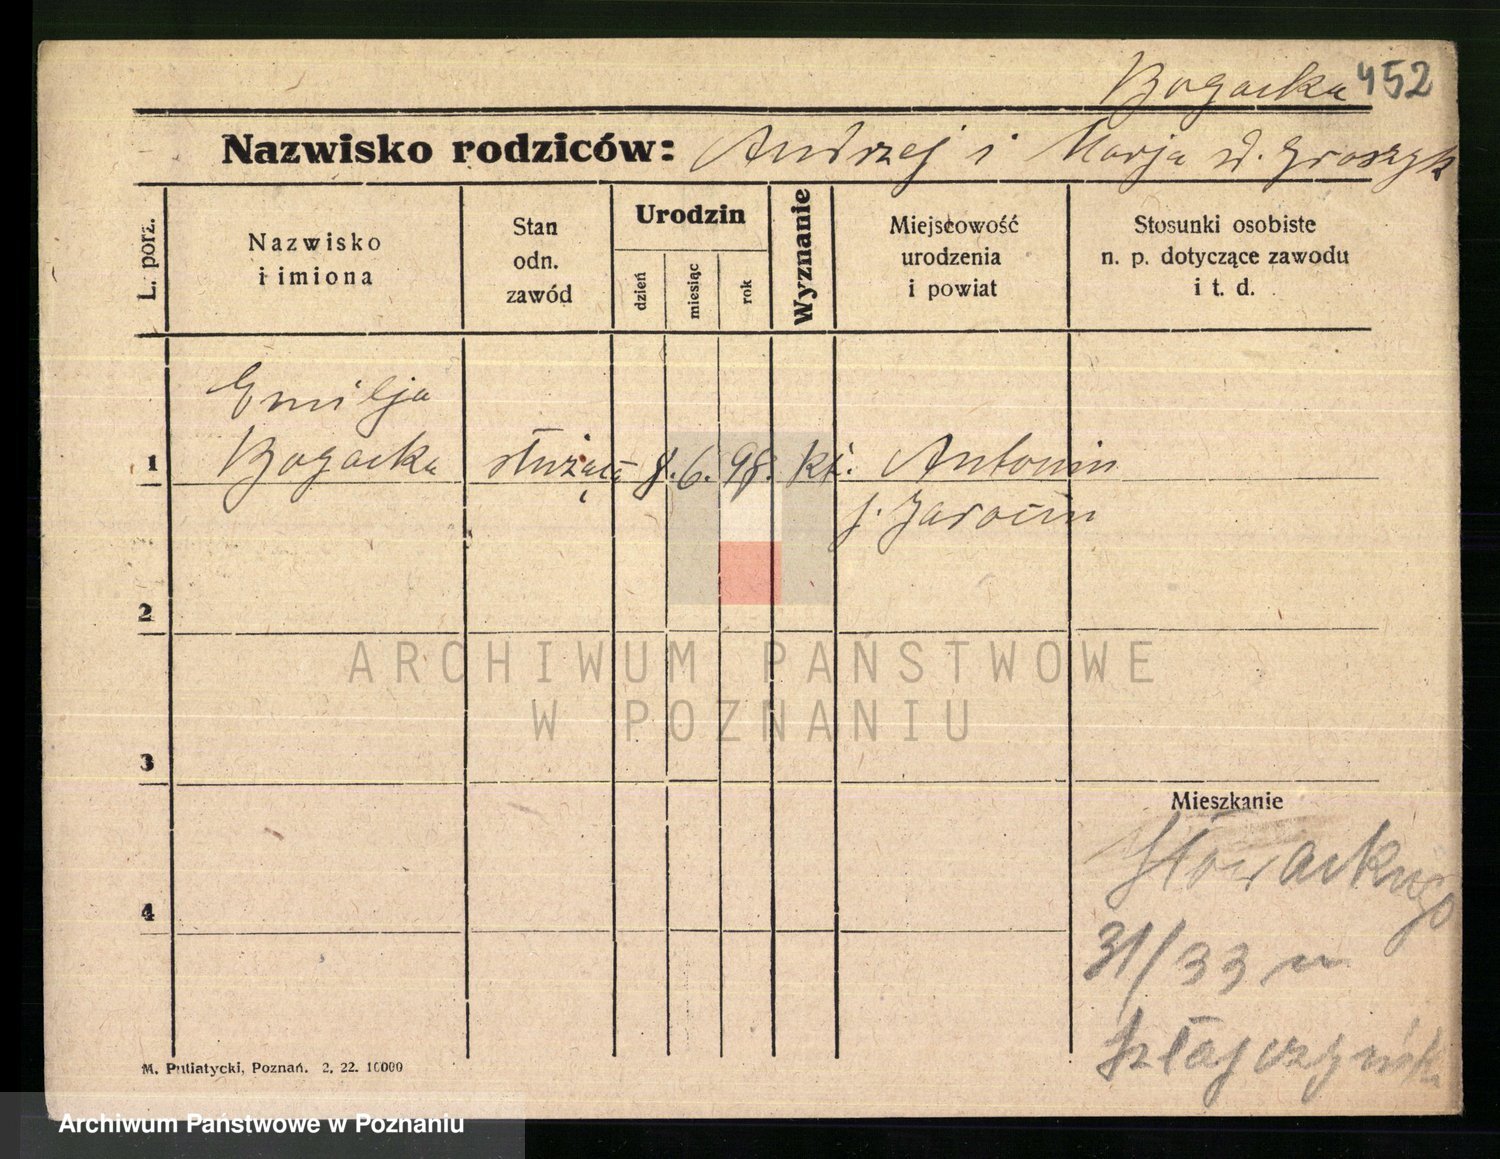 Bogacka 452
Nazwisko rodziców: Andrzej i Marja d. Graszyk
L. porz.
Nazwisko
i imiona
Stan
odn.
zawód
Urodzin
dzień
miesiąc
rok
Wyznanie
Miejscowość
urodzenia
i powiat
Stosunki osobiste
n. p. dotyczące zawodu
i t. d.
Emilja
1 Bogacka służąca 8. 6. 98. kt. Antonin
p. Jarocin
2
ARCHIWUM PAŃSTWOWE
W POZNANIU
3
Mieszkanie
Słowackiego
4
31/33 u
M. Putiatycki, Poznań. 2. 22. 10000
Archiwum Państwowe w Poznaniu